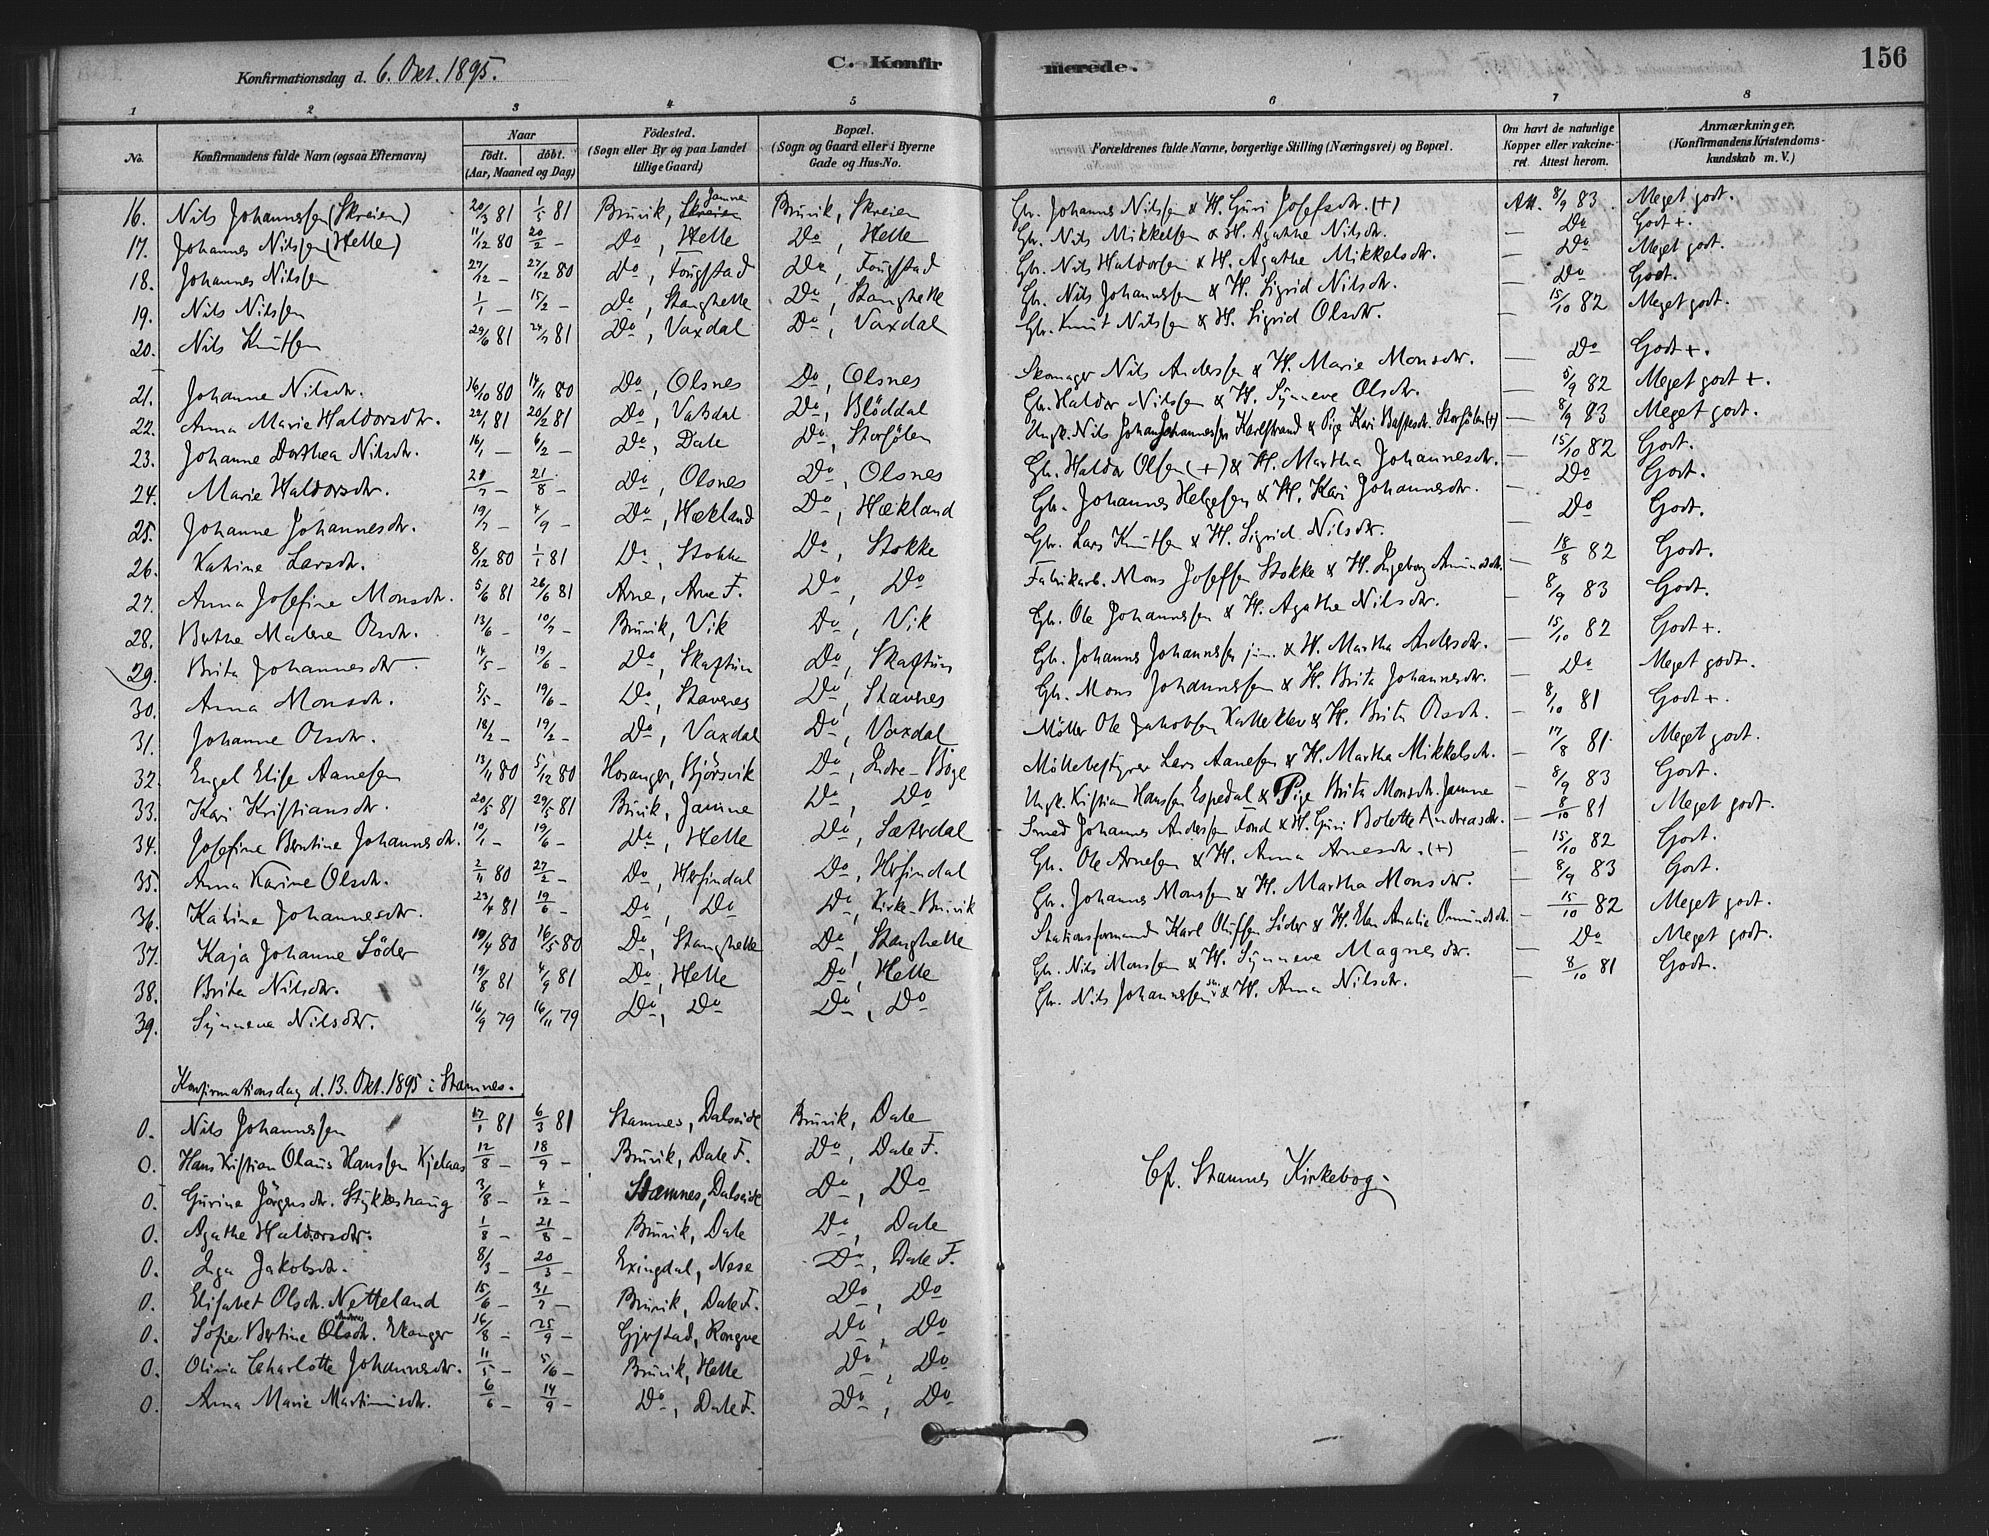 Konfirmationsdag d. 6. Okt. 1895. C. Konfirmerede. 156
1 2 3 4 5 6 7 8
No. Konfirmandens fulde Navn (ogsaa Efternavn) Naar födt. döbt. (Aar, Maaned og Dag) Födested. (Sogn eller By og paa Landet tillige Gaard) Bopæl. (Sogn og Gaard eller i Byerne Gade og Hus-No. Forældrenes fulde Navne, borgerlige Stilling (Næringsvei) og Bopæl. Om havt de naturlige Kopper eller vaccineret. Attest herom. Anmærkninger. (Konfirmandens Kristendomskundskab m. V.)
16. Nils Johannessen (Skreien) 20/3 81 1/5 81 Bruvik, Skreien Jamne Bruvik, Skreien Gbr. Johannes Nilsen & H. Guri Josefsdtr. (+) Att. 8/9 83. Meget godt.
17. Johannes Nilsen (Helle) 11/12 80 20/2 – Do, Helle Do, Helle Gbr. Nils Mikkelsen & H. Agathe Nilsdtr. – Do Godt +.
18. Johannes Nilssen 27/12 – 27/12 80 Do, Fougstad Do, Fougstad Gbr. Nils Haldorsen & H. Agathe Mikkelsdtr. – Do Meget godt.
19. Nils Nilssen 1/1 – 15/2 – Do, Stanghelle Do, Stanghelle Gbr. Nils Johannessen & H. Sigrid Nilsdtr. – Do Godt.
20. Nils Knutsen 29/6 81 24/7 81 Do, Vaxdal Do, Vaxdal Gbr. Knut Nilssen & H. Sigrid Olsdtr. – 15/10 82 Meget godt.
21. Johanne Nilsdtr. 26/10 80 14/11 80 Do, Olsnes Do, Olsnes Skomager Nils Anderssen & H. Marie Monsdtr. – Do Godt +.
22. Anna Marie Haldorsdtr. 22/1 81 20/2 81 Do, Vassdal Do, Bløddal Gbr. Haldor Nilssen & H. Synneve Olsdtr. – 5/9 82 Meget godt +.
23. Johanne Dorthea Nilsdtr. 16/1 – 6/2 – Do, Dale Do, Storfolen Ungk. Nils Johannessen Karlstrand & Pige Kari – 8/9 83 Meget godt.
24. Marie Haldorsdtr. 20/7 – 21/8 – Do, Olsnes Do, Olsnes Gbr. Haldor Olsen (+) & H. Martha Johannesdtr. – 15/10 82 Godt.
25. Johanne Johannesdtr. 19/7 – 4/9 – Do, Hækland Do, Hækland Gbr. Johannes Helgesen & H. Kari Johannesdtr. – Do Godt.
26. Katrine Larsdtr. 8/12 80 1/1 81 Do, Stokke Do, Stokke Gbr. Lars Knutsen & H. Sigrid Nilsdtr. – Do Godt.
27. Anna Josefine Monsdtr. 5/6 81 26/6 81 Arne, Arne F. Do, Do Fabrikarb. Mons Josefsen Stokke & H. Ingeborg Amundsdtr. – 18/8 82 Godt.
28. Berthe Malene Olsdtr. 13/6 – 10/7 – Bruvik, Vik Do, Vik Gbr. Ole Johannessen & H. Agathe Nilsdtr. 8/9 83 Godt.
29. Brita Johannesdtr. 14/5 – 19/6 – Do, Skaftun Do, Skaftun Gbr. Johannes Johannessen jun. & H. Martha Andersdtr. – 15/10 82 Godt +.
30. Anna Monsdtr. 5/5 – 19/6 – Do, Stavenes Do, Stavnes Gbr. Mons Johannessen & H. Brita Johannesdtr. – Do Meget godt.
31. Johanne Olsdtr. 18/2 – 19/2 – Do, Vaxdal Do, Vaxdal Möller Ole Jakobsen Kalleklev & H. Brita Olsdtr. 8/10 81 Godt +.
32. Engel Elise Aanesen 13/11 80 5/12 80 Hosanger, Bjørsvik Do, Indre-Boge Möllebestyrer Lars Aanesen & H. Martha Mikkelsdtr. – 17/8 81. Meget godt.
33. Kari Kristiansdtr. 20/5 81 29/5 81 Bruvik, Jamne Do, Do Ungk. Kristian Hanssen Espedal & Pige Brita Monsdtr. Jamne – 8/9 83 Godt.
34. Josefine Berntine Johannesdtr. 19/1 – 19/6 – Do, Helle Do, Sæterdal Smed Johannes Anderssen Fond & H. Guri Bolette Andreasdtr. – 8/10 81 Meget godt.
35. Anna Karine Olsdtr. 2/11 80 27/2 – Do, Herfindal Do, Herfindal Gbr. Ole Arnesen & H. Anna Arnesdtr. (+) – 15/10 82 Godt.
36. Katrine Johannesdtr. 23/4 81 19/6 – Do, Do Do, Kirke-Bruvik Gbr. Johannes Monssen & H. Martha Monsdtr. – 8/9 83 Godt.
37. Kaja Johanne Söder 19/4 80 16/5 80 Do, Stanghelle Do, Stanghelle Stationsformand Karl Olufsen Söder & H. Elen Amalie Omundsdtr. – 15/10 82 Meget godt.
38. Brita Nilsdtr. 19/8 81 4/9 81 Do, Helle Do, Helle Gbr. Nils Monssen & H. Synneve Magnesdtr. – Do Meget godt.
39. Synneve Nilsdtr. 16/9 79 16/11 79 Do, Do Do, Do Gbr. Nils Johannessen & H. Anna Nilsdtr. – 8/10 81 Godt.
Konfirmationsdag d. 13. Okt. 1895 i Stamnes.
0. Nils Johannessen 17/1 81 6/3 81 Stamnes, Dalseide Bruvik, Dale
0. Hans Kristian Olaus Hanssen Kjelaas 12/8 – 18/9 – Bruvik, Dale F. Do, Dale F.
0. Gurine Jörgensdtr. Stykkeshaug 3/8 – 4/12 – Stamnes, Dalseide Do, Do Cf. Stamnes Kirkebog.
0. Agathe Haldorsdtr. 1/8 – 21/8 – Bruvik, Dale Do, Dale
0. Inga Jakobsdtr. 8/3 – 20/3 – Exingdal, Nese Do, Dale F.
0. Elisabet Olsdtr. Netteland 15/6 – 31/7 – Bruvik, Dale F. Do, Do
0. Sofie Bertine Olsdtr. Andrea Ekanger 16/8 – 25/9 – Gjerstad, Rongve Do, Do
0. Olivia Charlotte Johannesdtr. 11/5 – 5/6 – Bruvik, Helle Do, Do
0. Anna Marie Martinusdtr. 6/6 – 14/9 – Do, Dale F. Do, Do